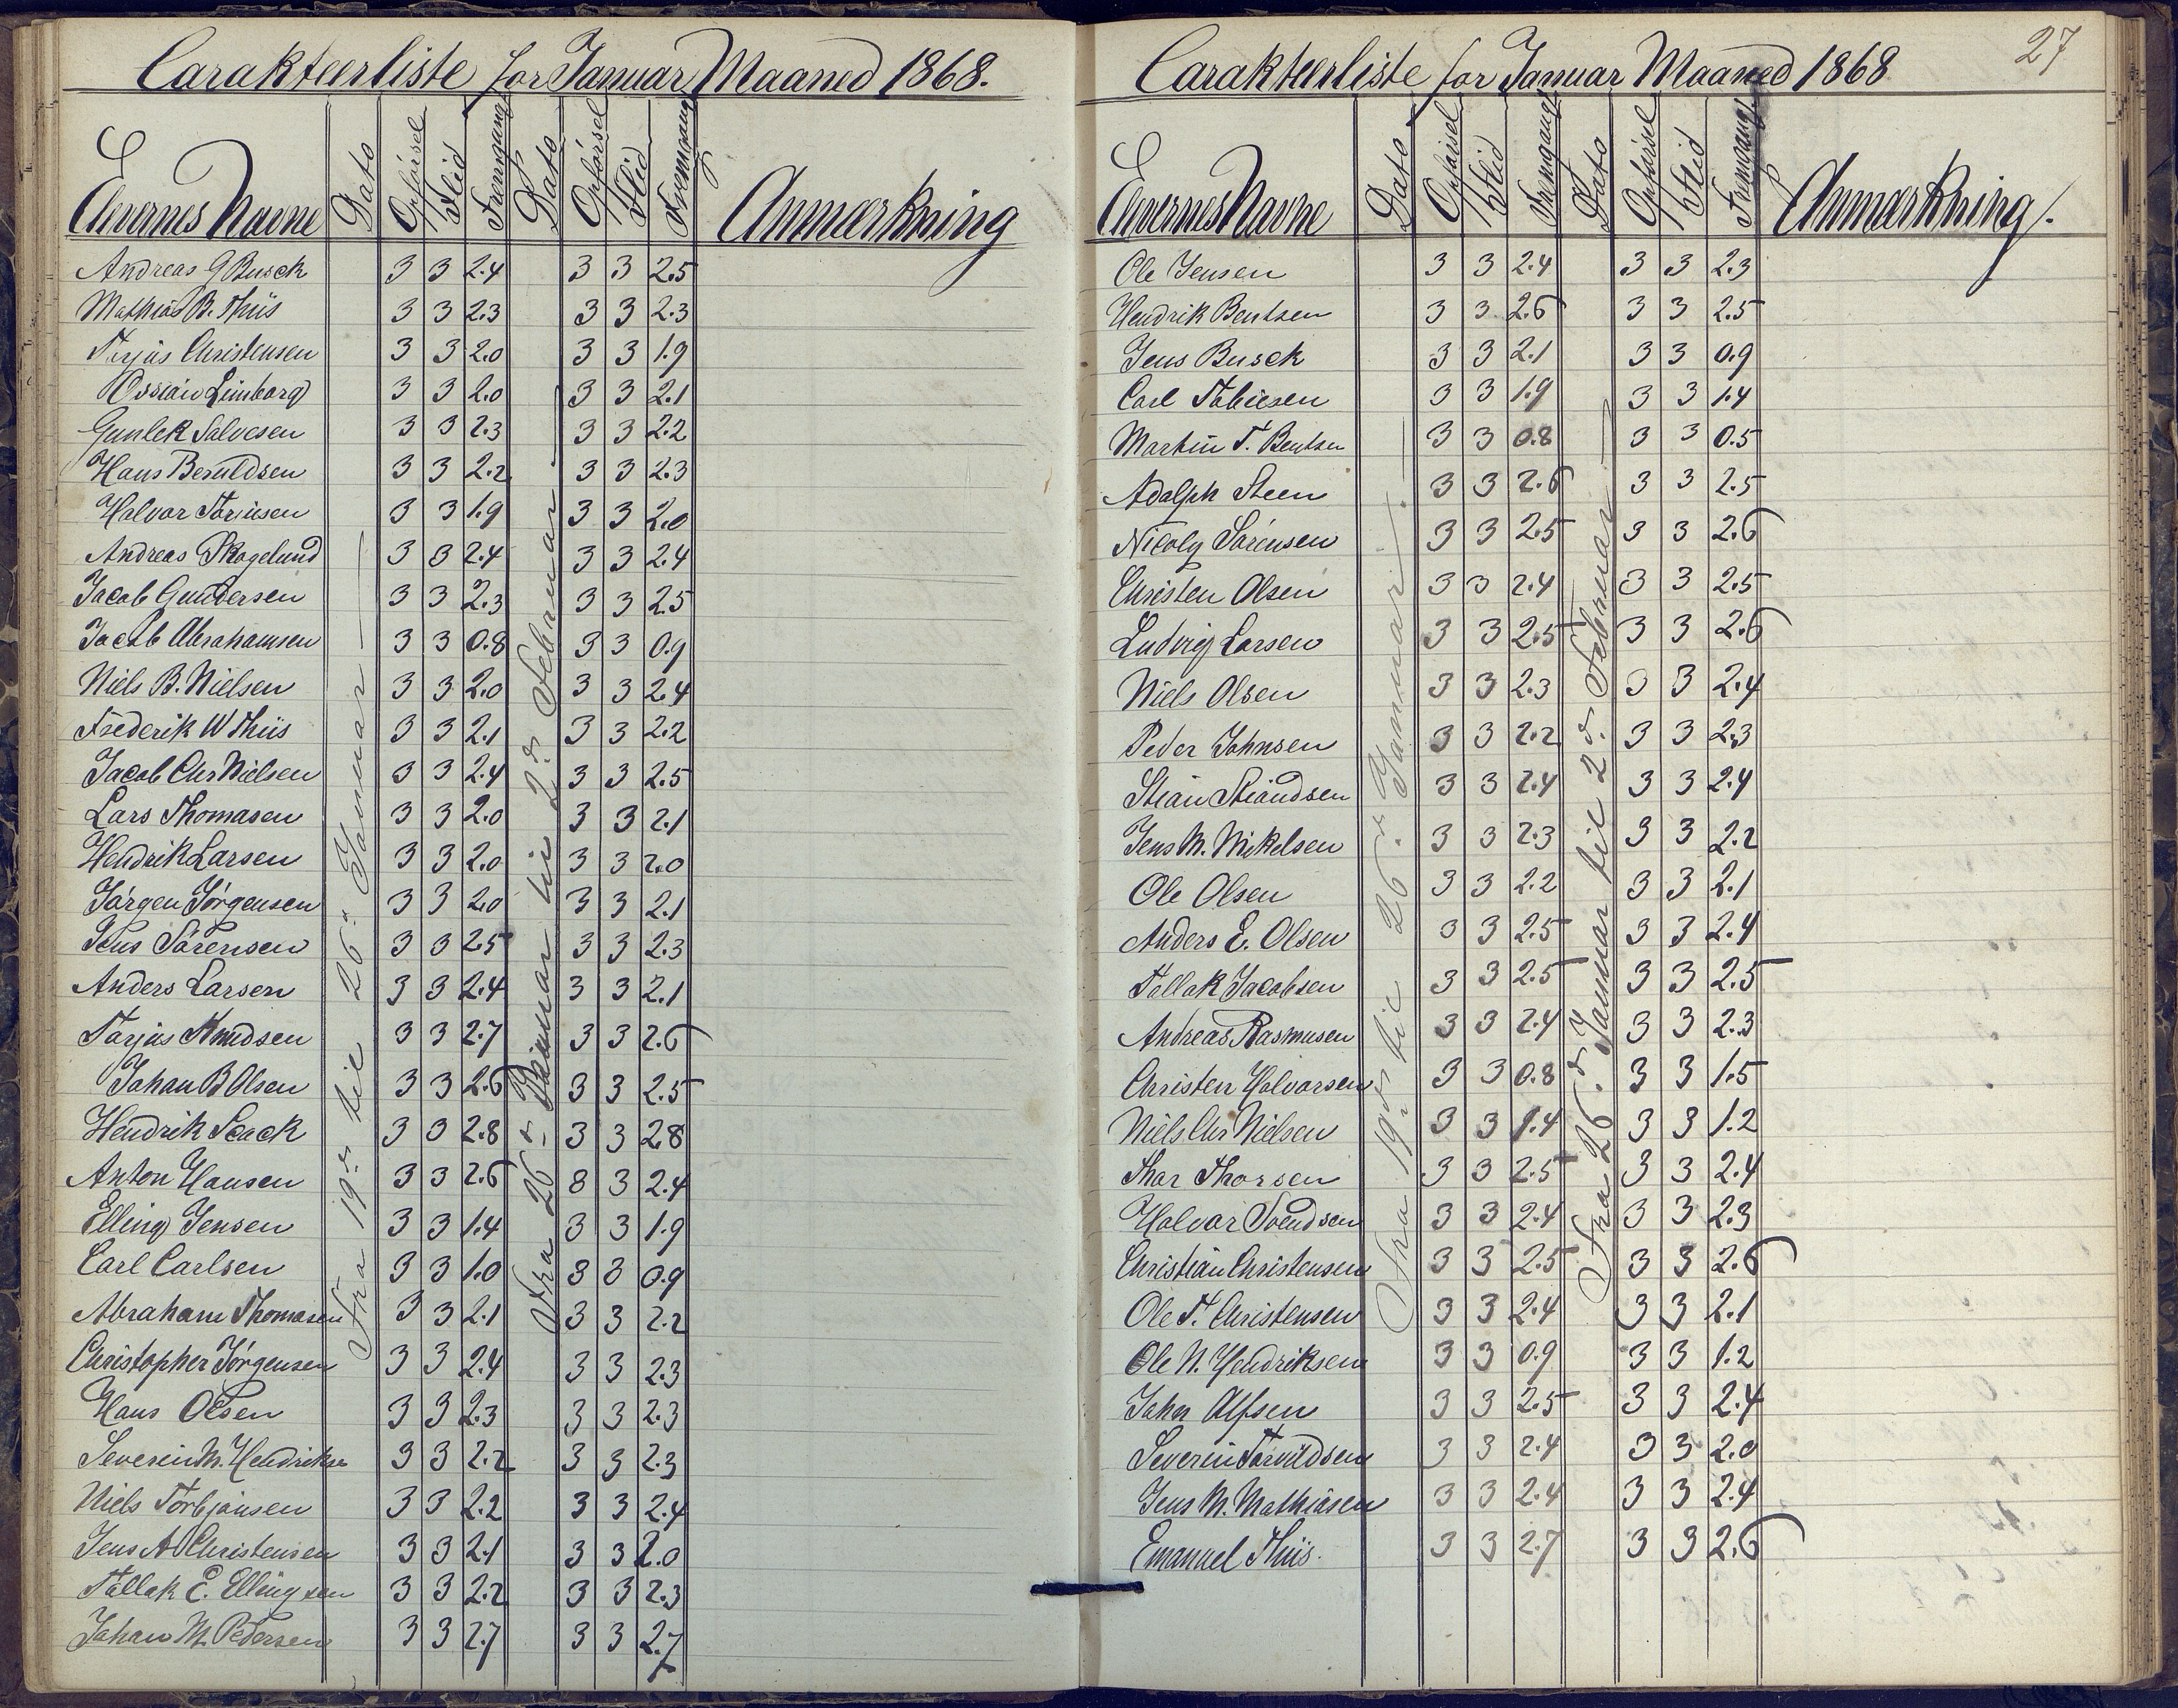 Carakteerliste for Januar Maaned 1868.
Elevernes Navne Dato Opførsel Flid Fremgang Dato Opførsel Flid Fremgang Anmærkning
Fra 19de til 26de Januar
Fra 26de Januar til 2de Februar
Andreas G Busch 3 3 2.4 3 3 2.5
Mathias B. Thiis 3 3 2.3 3 3 2.3
Terjus Christensen 3 3 2.0 3 3 1.9
Ossian Limborg 3 3 2.0 3 3 2.1
Gunlek Salvesen 3 3 2.3 3 3 2.2
Hans Beruldsen 3 3 2.2 3 3 2.3
Halvor Torjusen 3 3 1.9 3 3 2.0
Andreas Skogelund 3 3 2.4 3 3 2.4
Jacob Gundersen 3 3 2.3 3 3 2.5
Jacob Abrahamsen 3 3 0.8 3 3 0.9
Niels B. Nielsen 3 3 2.0 3 3 2.4
Frederik W Thiis 3 3 2.1 3 3 2.2
Jacob Chr Nielsen 3 3 2.4 3 3 2.5
Lars Thomasen 3 3 2.0 3 3 2.1
Hendrik Larsen 3 3 2.0 3 3 2.0
Jørgen Jørgensen 3 3 2.0 3 3 2.1
Jens Sørensen 3 3 2.5 3 3 2.3
Anders Larsen 3 3 2.4 3 3 2.1
Tarjus Knudsen 3 3 2.7 3 3 2.6
Johan B Olsen 3 3 2.6 3 3 2.5
Hendrik Seack 3 3 2.8 3 3 2.8
Anton Hansen 3 3 2.6 3 3 2.4
Elling Jensen 3 3 1.4 3 3 1.9
Carl Carlsen 3 3 1.0 3 3 0.9
Abraham Thomasen 3 3 2.1 3 3 2.2
Christopher Jørgensen 3 3 2.4 3 3 2.3
Hans Olsen 3 3 2.3 3 3 2.3
Severin M. Hendrikse 3 3 2.2 3 3 2.3
Niels Torbjønsen 3 3 2.2 3 3 2.4
Jens A Christensen 3 3 2.1 3 3 2.0
Tallak E. Ellingsen 3 3 2.2 3 3 2.3
Johan M. Pedersen 3 3 2.7 3 3 2.7
27
Carakteerliste for Januar Maaned 1868
Elevernes Navne Dato Opførsel Flid Fremgang Dato Opførsel Flid Fremgang Anmærkning.
Fra 19de til 26de Januar.
Fra 26de Januar til 2de Februar
Ole Jensen 3 3 2.4 3 3 2.3
Hendrik Bentsen 3 3 2.6 3 3 2.5
Jens Busch 3 3 2.1 3 3 0.9
Carl Tobiesen 3 3 1.9 3 3 1.4
Martin T. Bentsen 3 3 0.8 3 3 0.5
Adolph Steen 3 3 2.6 3 3 2.5
Nicoly Sørensen 3 3 2.5 3 3 2.6
Christen Olsen 3 3 2.4 3 3 2.5
Ludvig Larsen 3 3 2.5 3 3 2.6
Niels Olsen 3 3 2.3 3 3 2.4
Peder Johnsen 3 3 2.2 3 3 2.3
Stian Stiandsen 3 3 2.4 3 3 2.4
Jens M. Mikelsen 3 3 2.3 3 3 2.2
Ole Olsen 3 3 2.2 3 3 2.1
Anders E. Olsen 3 3 2.5 3 3 2.4
Tallak Jacobsen 3 3 2.5 3 3 2.5
Andreas Rasmusen 3 3 2.4 3 3 2.3
Christen Halvorsen 3 3 0.8 3 3 1.5
Niels Chr Nielsen 3 3 1.4 3 3 1.2
Thor Thorsen 3 3 2.5 3 3 2.4
Halvor Svendsen 3 3 2.4 3 3 2.3
Christian Christensen 3 3 2.5 3 3 2.6
Ole T. Christensen 3 3 2.4 3 3 2.1
Ole N. Hendriksen 3 3 0.9 3 3 1.2
John Alfsen 3 3 2.5 3 3 2.4
Severin Tarvildsen 3 3 2.4 3 3 2.0
Jens M. Mathiasen 3 3 2.4 3 3 2.4
Emanuel Thiis. 3 3 2.7 3 3 2.6